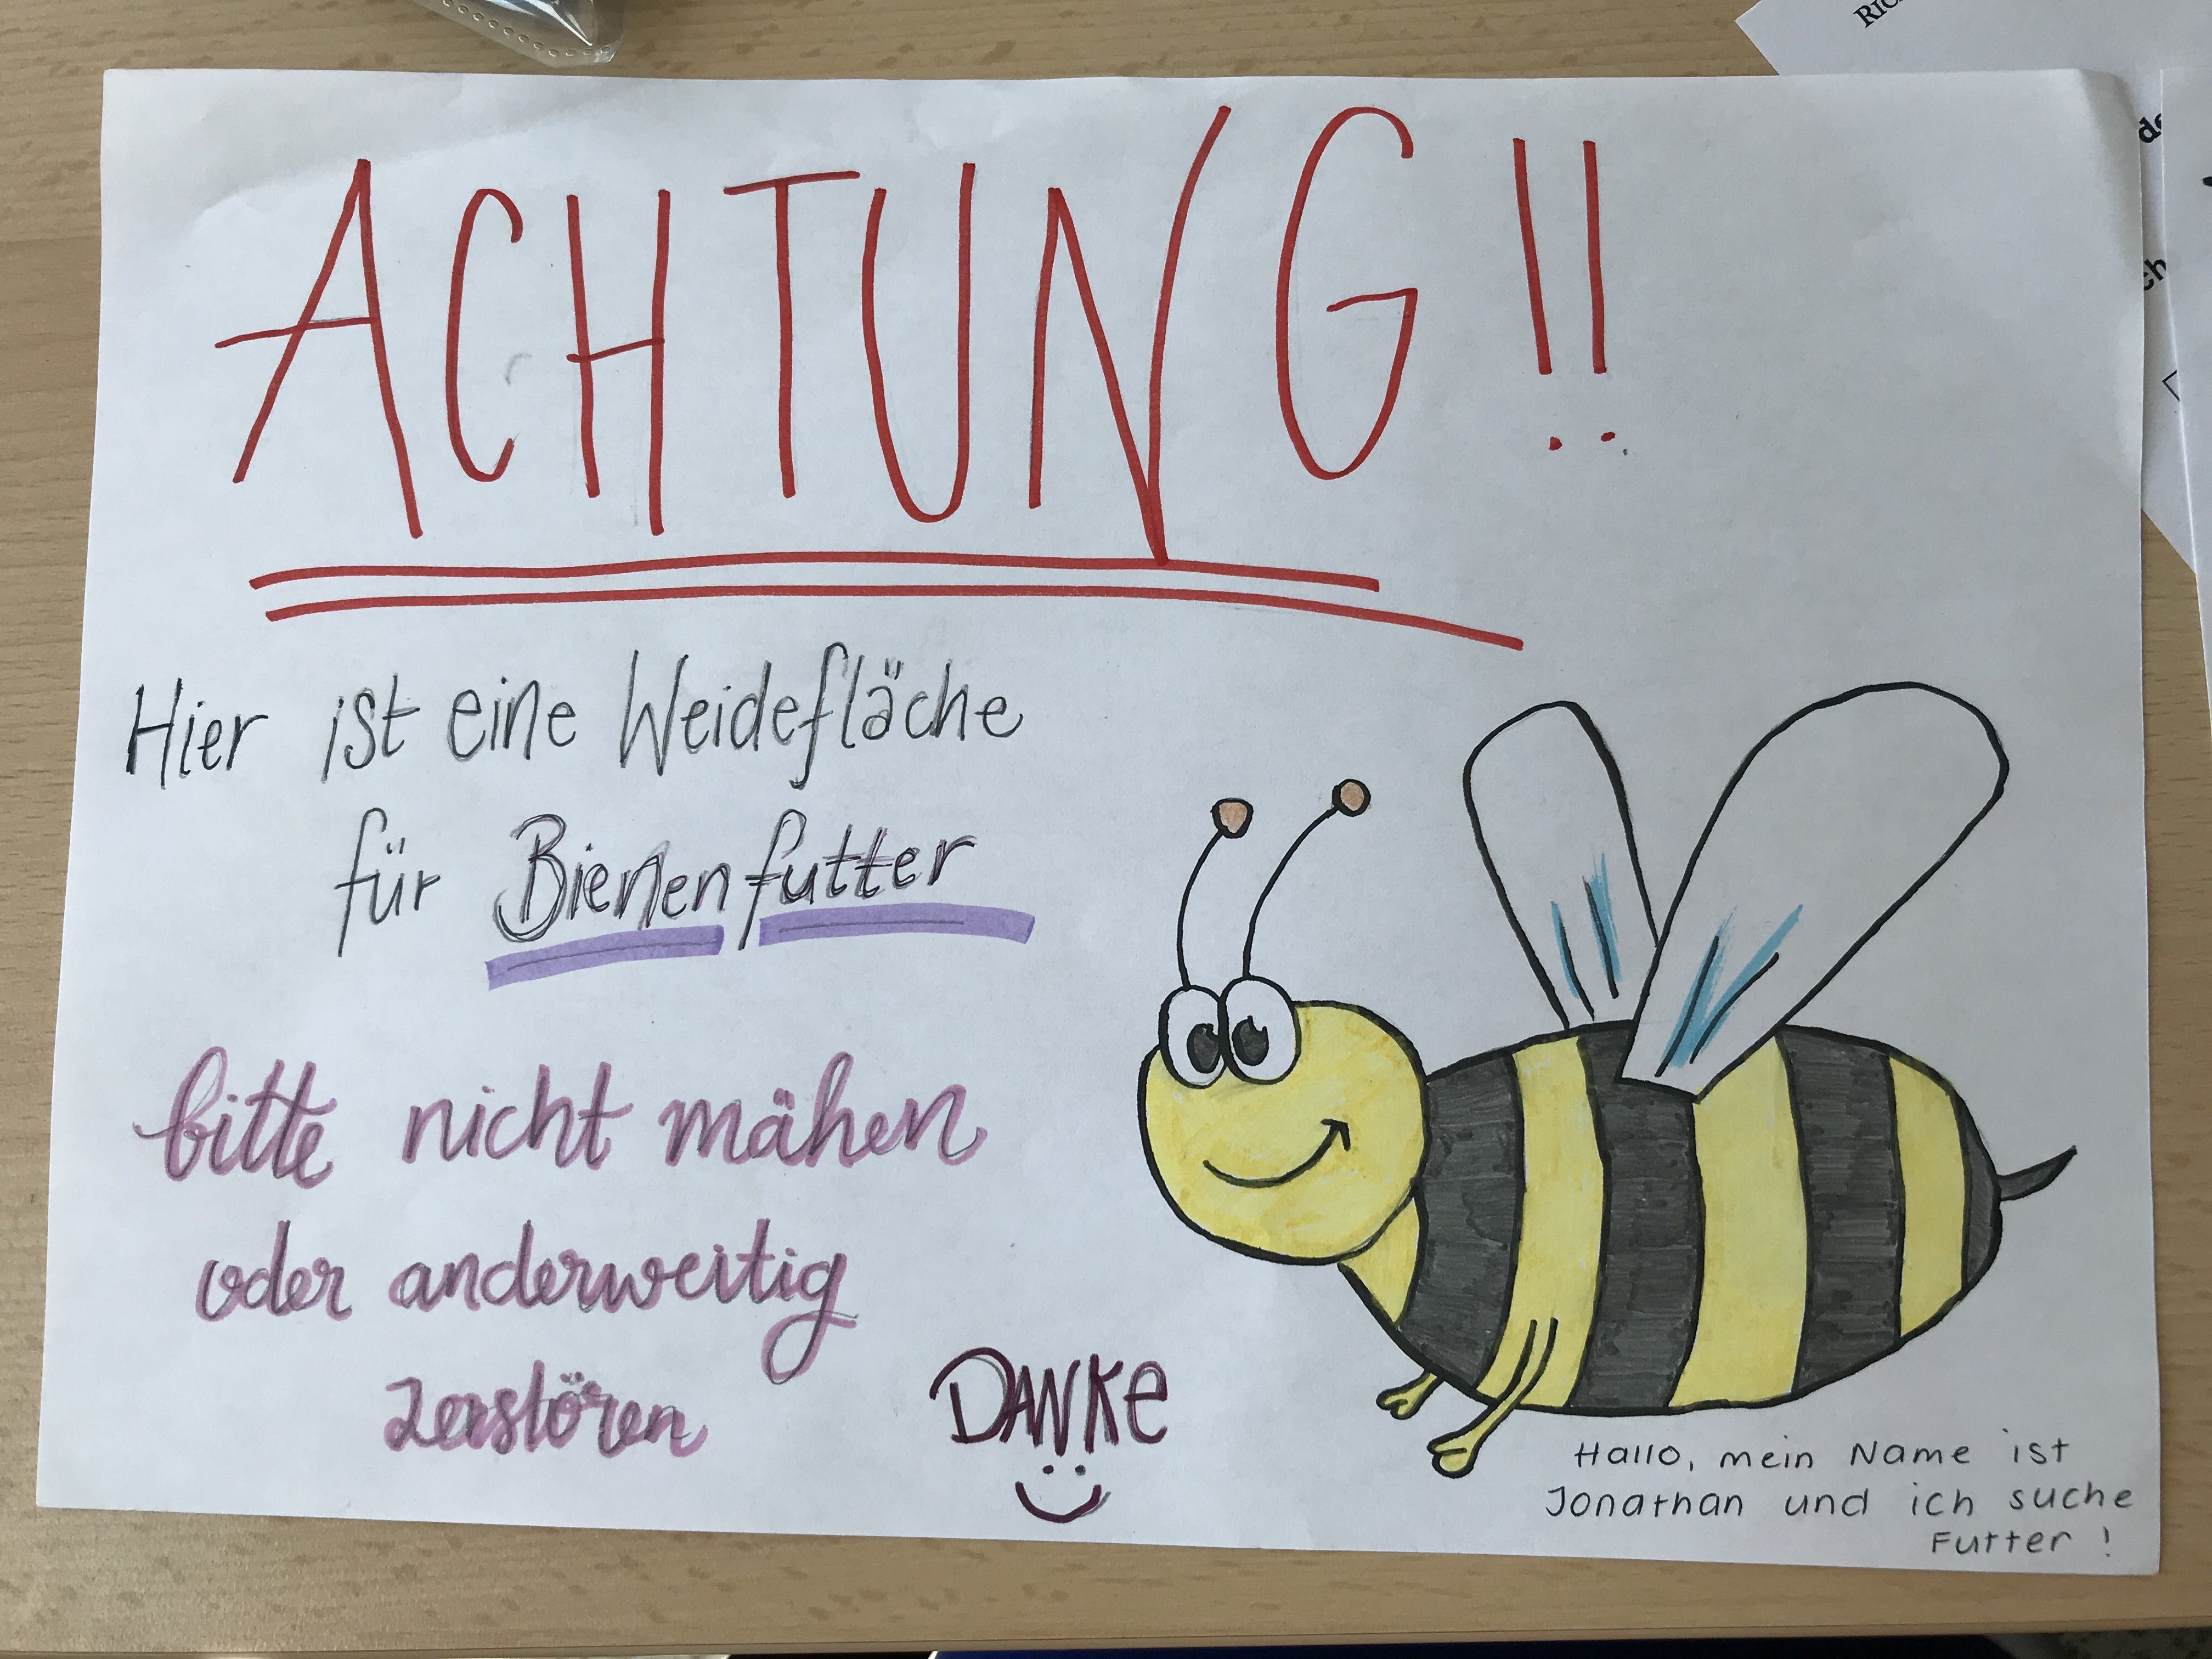 ACHTUNG!!
Hier ist eine Weidefläche
für Bienenfutter
bitte nicht mähen
oder anderweitig
zerstören
DANKE
Hallo, mein Name ist
Jonathan und ich suche
Futter!